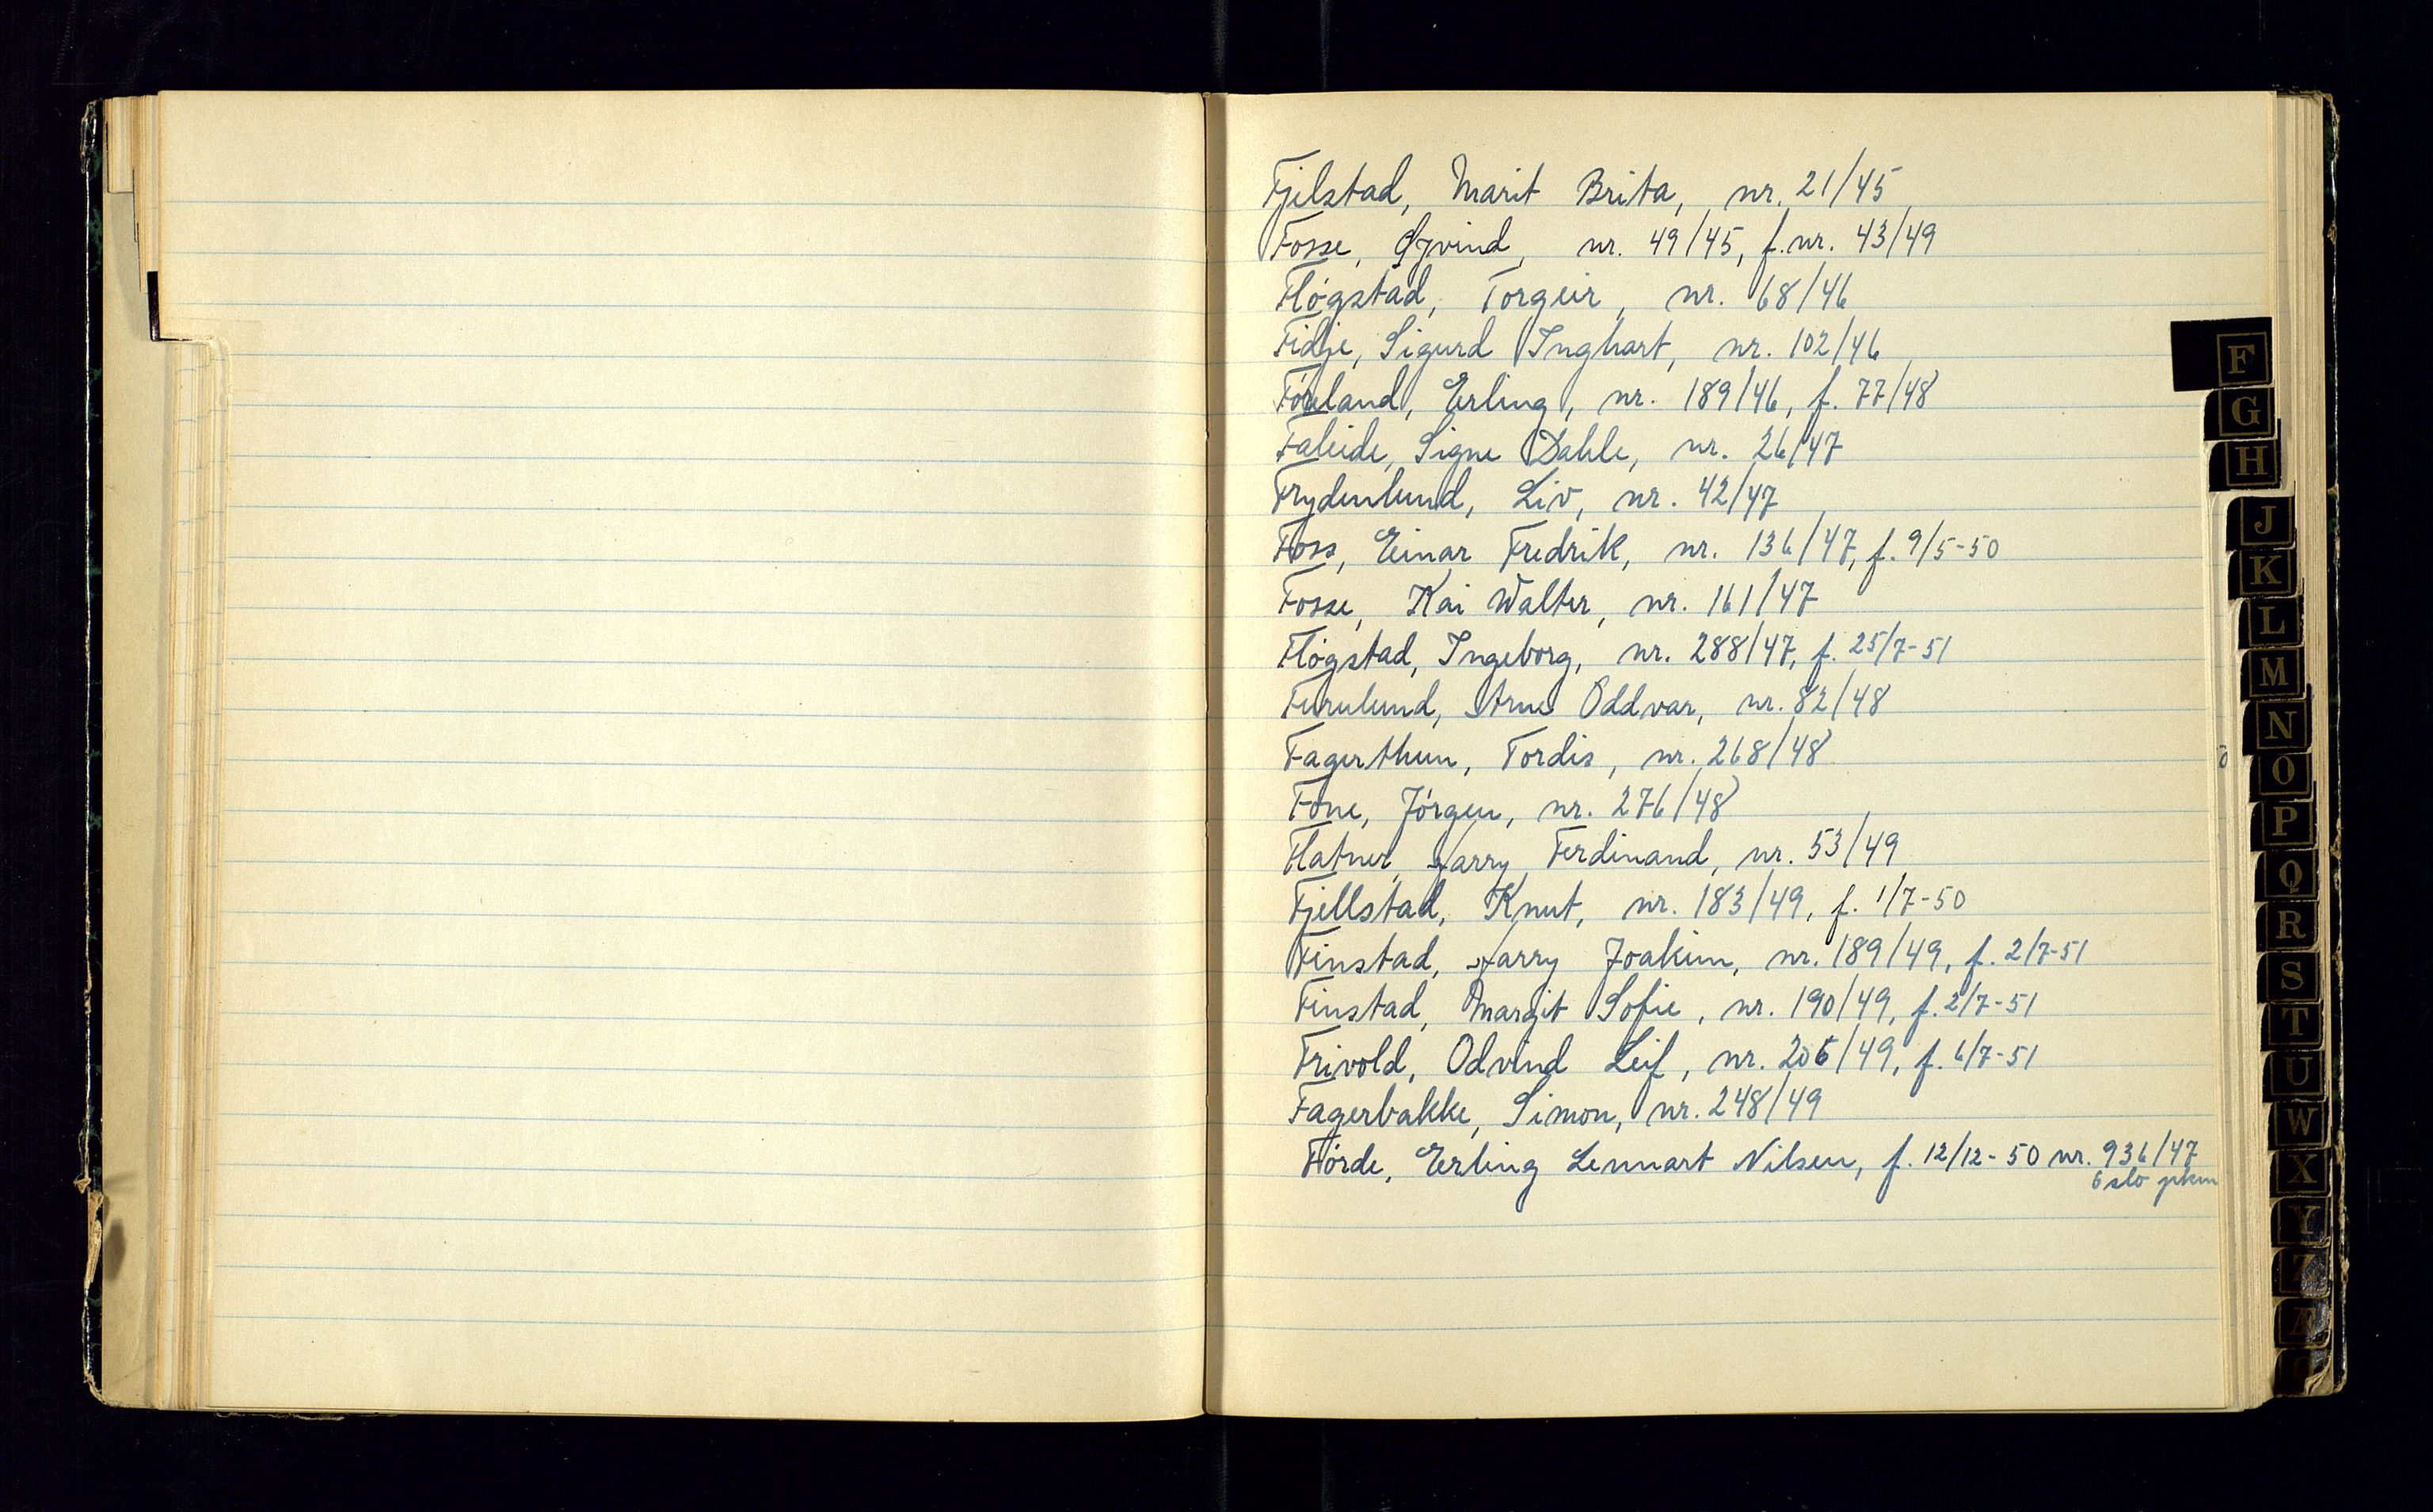 Fjelstad, Marit Brita, nr. 21/45
Fosse, Øjvind, nr. 49/45, f. nr. 43/49
Fløgstad, Torgeir, nr. 68/46
Fidje, Sigurd Inghart, nr. 102/46
Erling, nr. 189/46, f. 77/48
Faleide, Signe Dahle, nr. 26/47
Frydenlund, Liv, nr. 42/47
Foss, Einar Fredrik, nr. 136/47, f. 9/5-50
Fosse, Kai Walter, nr. 161/47
Fløgstad, Ingeborg, nr. 288/47, f. 25/7-51
Furulund, Arne Oddvar, nr. 82/48
Fagerthun, Tordis, nr. 268/48
Fone, Jørgen, nr. 276/48
Flatner, Harry Ferdinand, nr. 53/49
Fjellstad, Knut, nr. 183/49, f. 1/7-50
Finstad, Harry Joakim, nr. 189/49, f. 2/7-51
Finstad, Margit Sofie, nr. 190/49, f. 2/7-51
Frivold, Odvind Leif, nr. 206/49, f. 6/7-51
Fagerbakke, Simon, nr. 248/49
Førde, Erling Lennart Nilsen, f. 12/12-50 nr. 936/47
Oslo pkm
F
G
H
J
K
L
M
N
O
P
Q
R
S
T
U
W
X
Y
Z
Æ